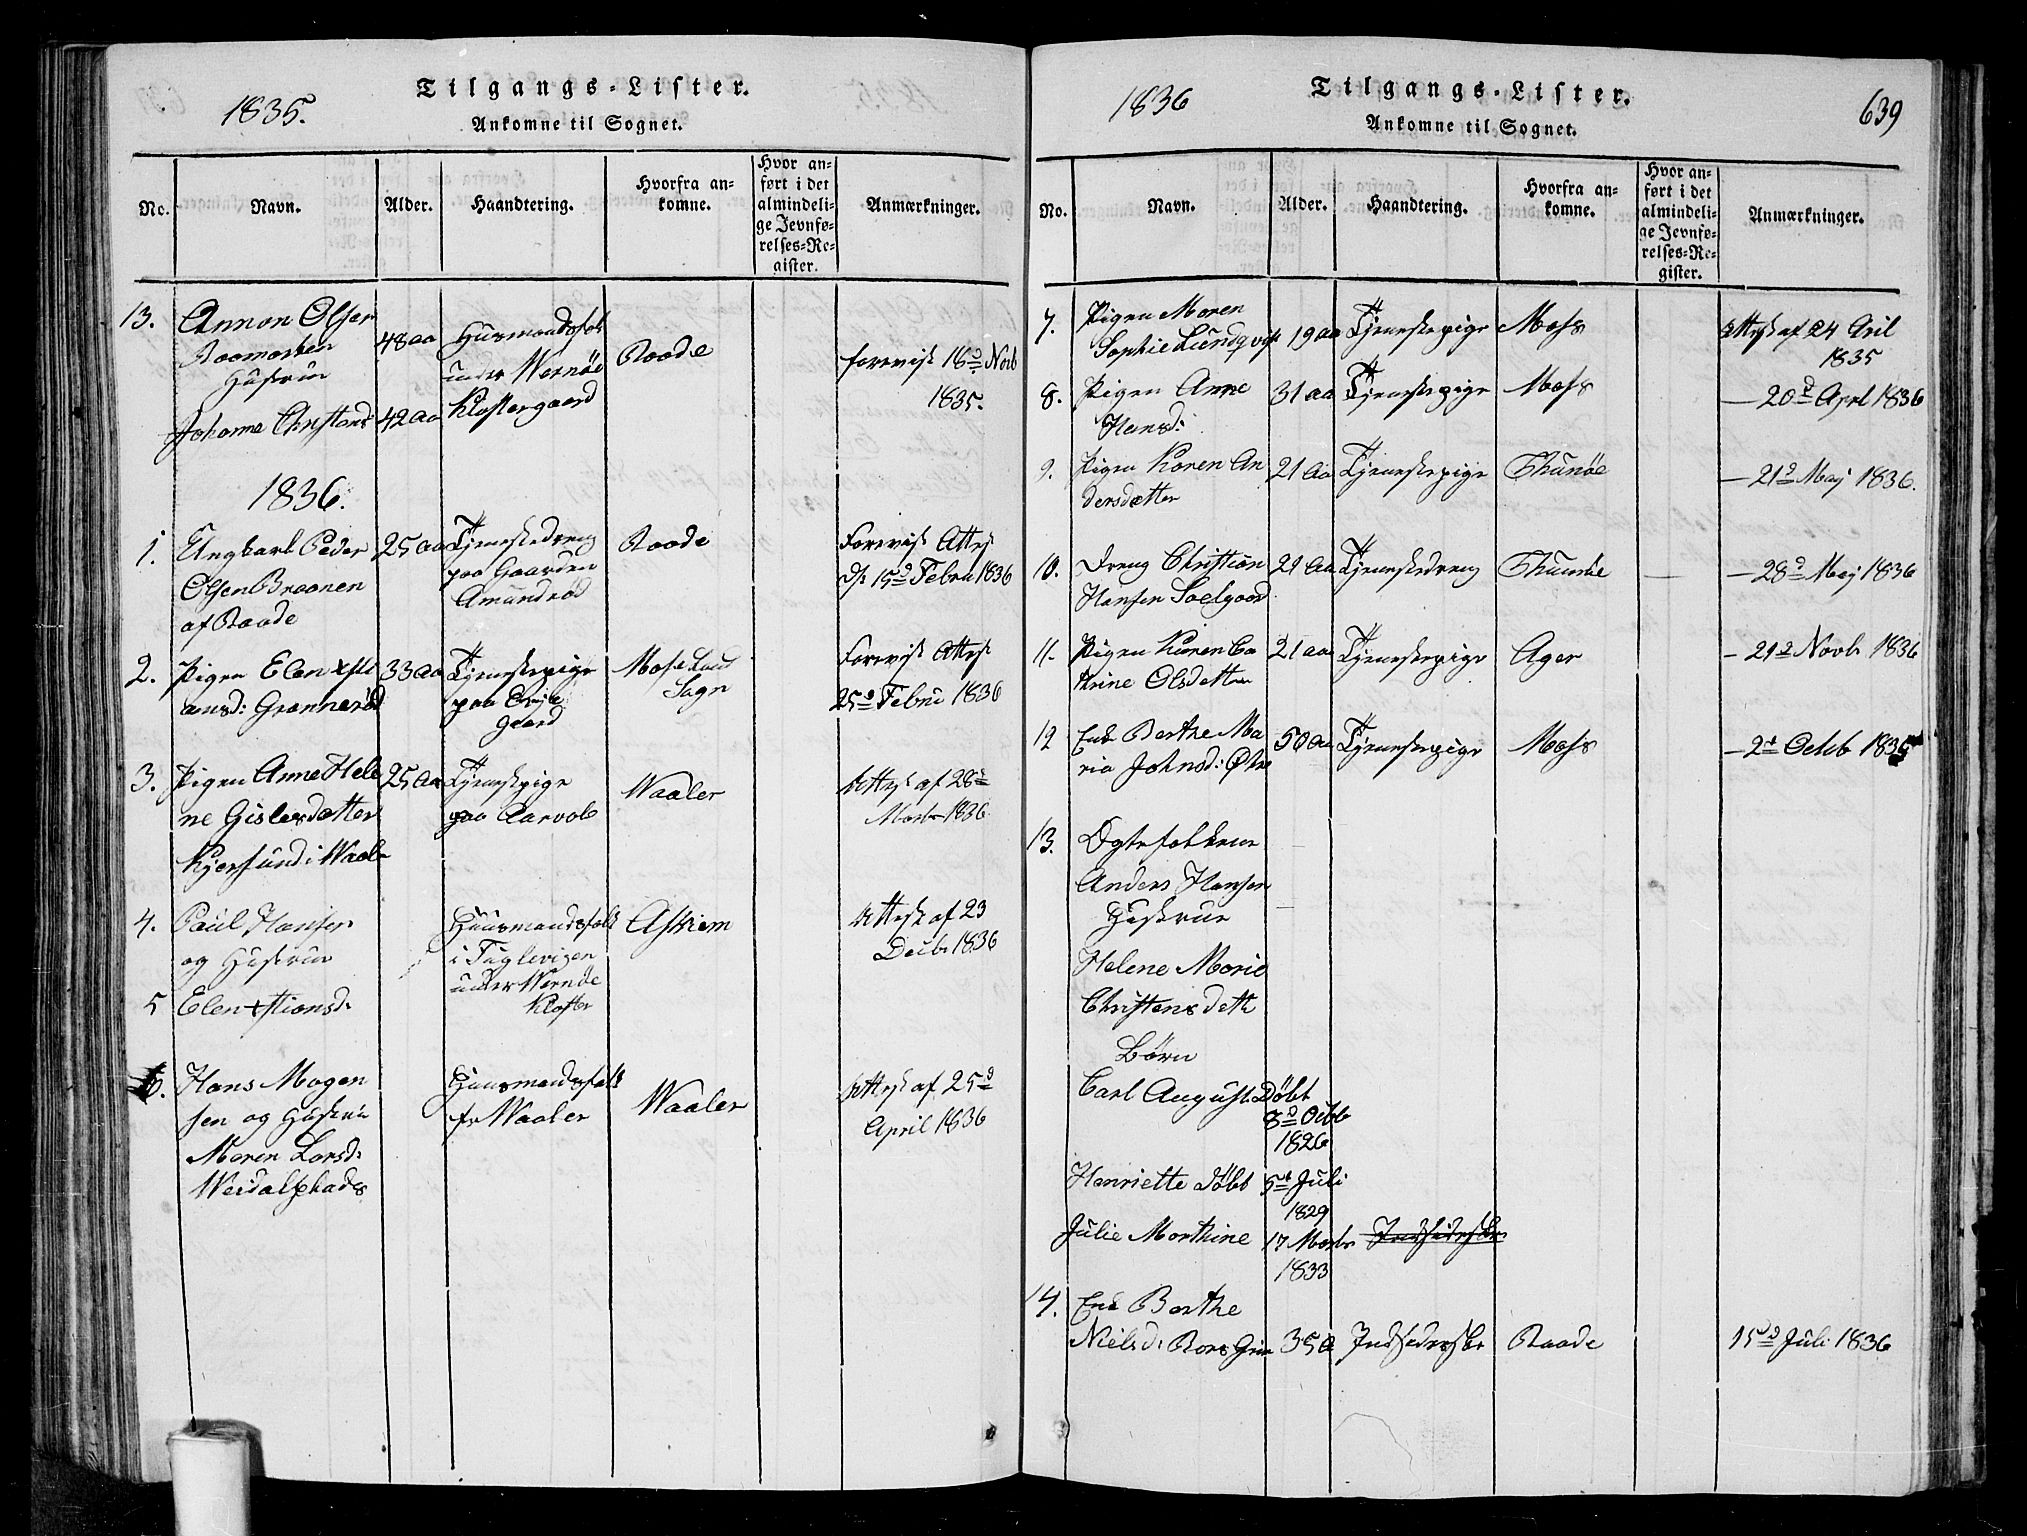 1835.
Tilgangs-Lister.
Ankomne til Sognet.
No.
Navn.
Alder.
Haandtering.
Hvorfra an-
komne.
Hvor an-
ført i det
almindeli-
ge Jevnfø-
relses-Re-
gister.
Anmærkninger.
13.
Annon Olsen
Raamosben
Hustrue
Johanne Christensd
48 aa
42 aa
Huusmandsfolk
under Wernøe
Klostergaard
Raade
forevist 18d Novb
1835.
1836.
1.
Ungkarl Peder
Olsen Braanen
af Raade
25 aa
Tjenestedreng
paa Gaarden
Amundrød
Raade
Forevist Attest
d: 15d Febru 1836
2.
Pigen Elen Xsti
ansd: Grønnerød
33 aa
Tjenestepige
paa
gaard
Moss Land
Sogn
Forevist Attest
25d Febru 1836
3.
Pigen Anne Hele
ne Gislersdatter
Kjersund i Waaler
25 aa
Tjenestpige
paa Aarvold
Waaler
Attest af 28d
Marts 1836
4.
Paul Hansen
og Hustrue
5
Elen Xstiansd:
Huusmandsfolk
i Teglevigen
under Wernøe
Kloster
Askiem
Attest af 23
Decbr 1836
6.
Hans Mogen
sen og Hustru
Maren Larsd:
Huusmandsfolk
fr Waaler
Waaler
Attest af 25d
April 1836
1836
Tilgangs-Lister.
Ankomne til Sognet.
639
No.
Navn.
Alder.
Haandtering.
Hvorfra an-
komne.
Hvor an-
ført i det
almindeli-
ge Jevnfø-
relses-Re-
gister.
Anmærkninger.
7.
Pigen Maren
Sophie Lundqvist
19 aa
Tjenestepige
Moss
Attest af 24 Aril
1835
8.
Pigen Anne
Hansd:
31 aa
Tjenestepige
Moss
— 20d Aprl 1836
9.
Pigen Karen An
dersdatter
21 aa
Tjenestepige
Thunøe
— 21d Maj 1836.
10.
Dreng Christian
Hansen Soelgaard
21 aa
Tjenestedreng
Thunøe
— 28d Maj 1836
11.
Pigen Karen Ca
thrine Olsdatter
21 aa
Tjenestepige
Ager
— 21d Novb 1836
12
Enke Berthe Ma
ria Johnsd:
50 aa
Tjenestepige
Moss
— 2d Octob 1835
13.
Ægtefolkene
Anders Hansen
Hustrue
Helene Marie
Christensdatt
Børn
Carl August Døbt
8d Octb
1826
Henriette Døbt 5te Juli
1829
Julie Marthine 17 Marts
1833
Indsiderske
14.
Enke Berthe
Nielsd:
35 a
Indsiderske
Raade
15d Juli 1836